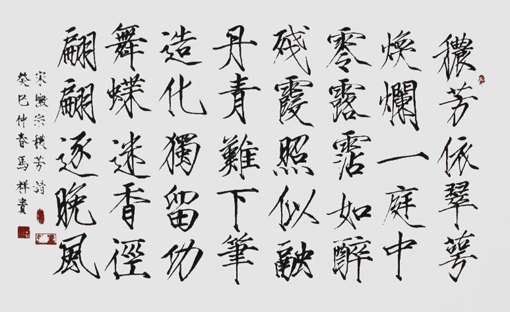 穠芳依翠萼
煥爛一庭中
零露霑如醉
殘霞照似融
丹青難下筆
造化獨留功
舞蝶迷香徑
翩翩逐晚風
宋徽宗穠芳詩
癸巳仲春馬祥貴